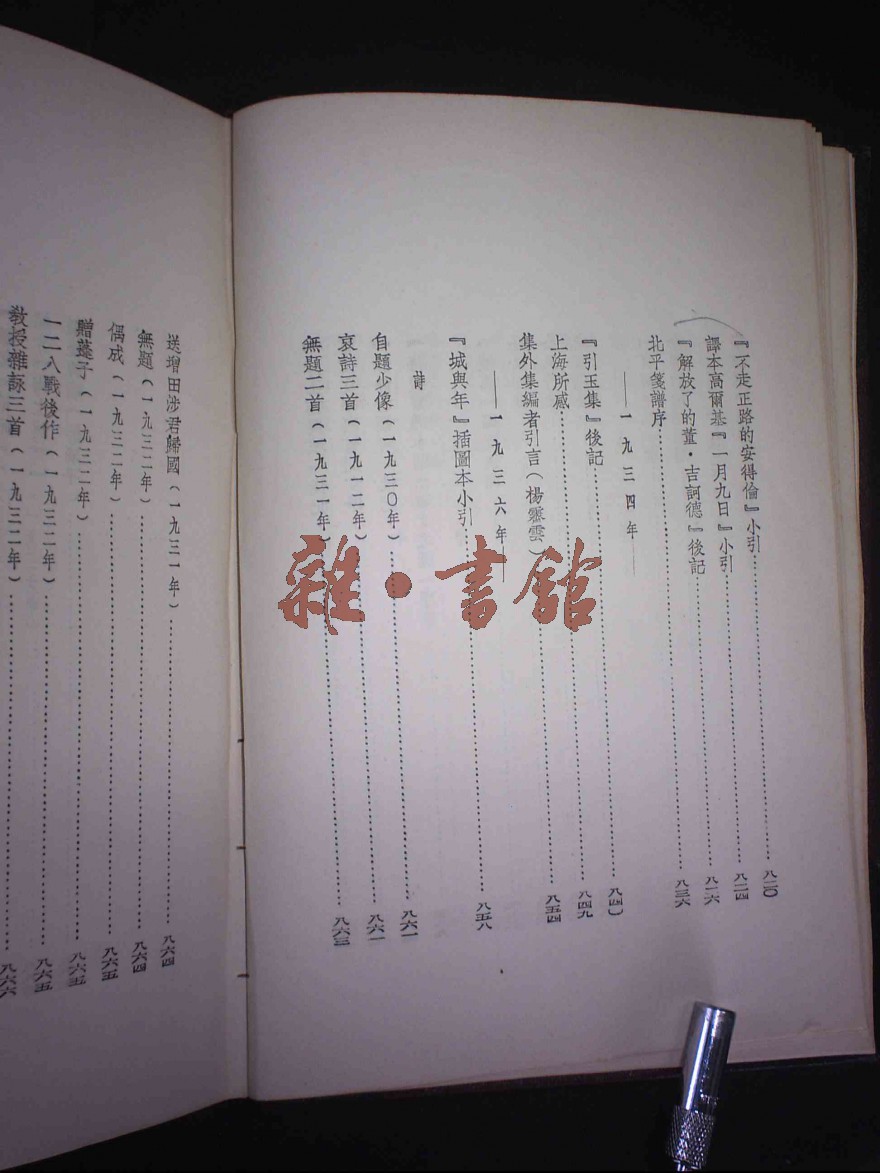 『不走正路的安得倫』小引……八二〇
譯本高爾基『一月九日』小引……八二四
『解放了的董·吉訶德』後記……八二六
北平箋譜序……八三六
——一九三四年——
『引玉集』後記……八四〇
上海所感……八四九
集外集編者引言(楊霽雲)……八五四
——一九三六年——
『城與年』插圖本小引……八五八
詩
自題少像(一九三〇年)……八六一
哀詩三首(一九一二年)……八六一
無題二首(一九三一年)……八六三
送增田涉君歸國(一九三一年)……八六四
無題(一九三二年)……八六四
偶成(一九三二年)……八六五
贈蓬子(一九三二年)……八六五
一二八戰後作(一九三二年)……八六五
敎授雜詠三首(一九三二年)……八六六
雜·書館